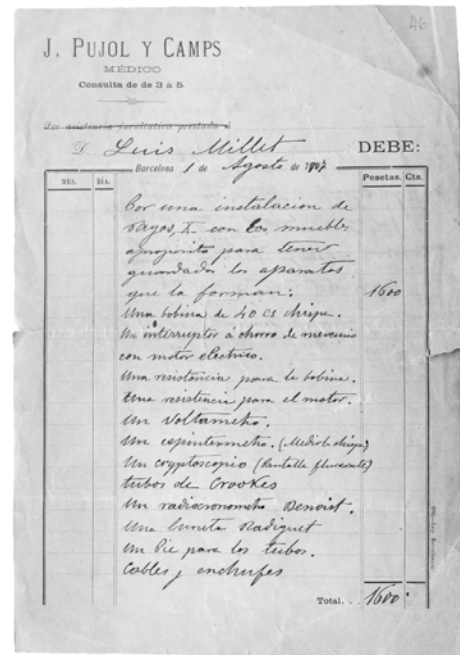 46
J. PUJOL Y CAMPS
MÉDICO
Consulta de de 3 á 5.
Por asistencia facultativa prestada á
D. Luis Millet DEBE:
Barcelona 1 de Agosto de 1907
MES. DIA. Pesetas. Cts.
Por una instalacion de
rayos, X con los muebles
apropósito para tener
guardados los aparatos
que la forman: 1600
Una bobina de 40 cs chispa.
Un interruptor á chorro de mercurio
con motor electrico.
Una resistencia para la bobina.
Una resistencia para el motor.
Un Voltametro.
Un espintermetro. (Medir la chispa)
Un cryptoscopio (Pantalla fluorescente)
tubos de Crookes
Un radiocronometro Benoist.
Una luneta Radiguet
Un Pie para los tubos.
Cables y enchufes
Total. . . 1600